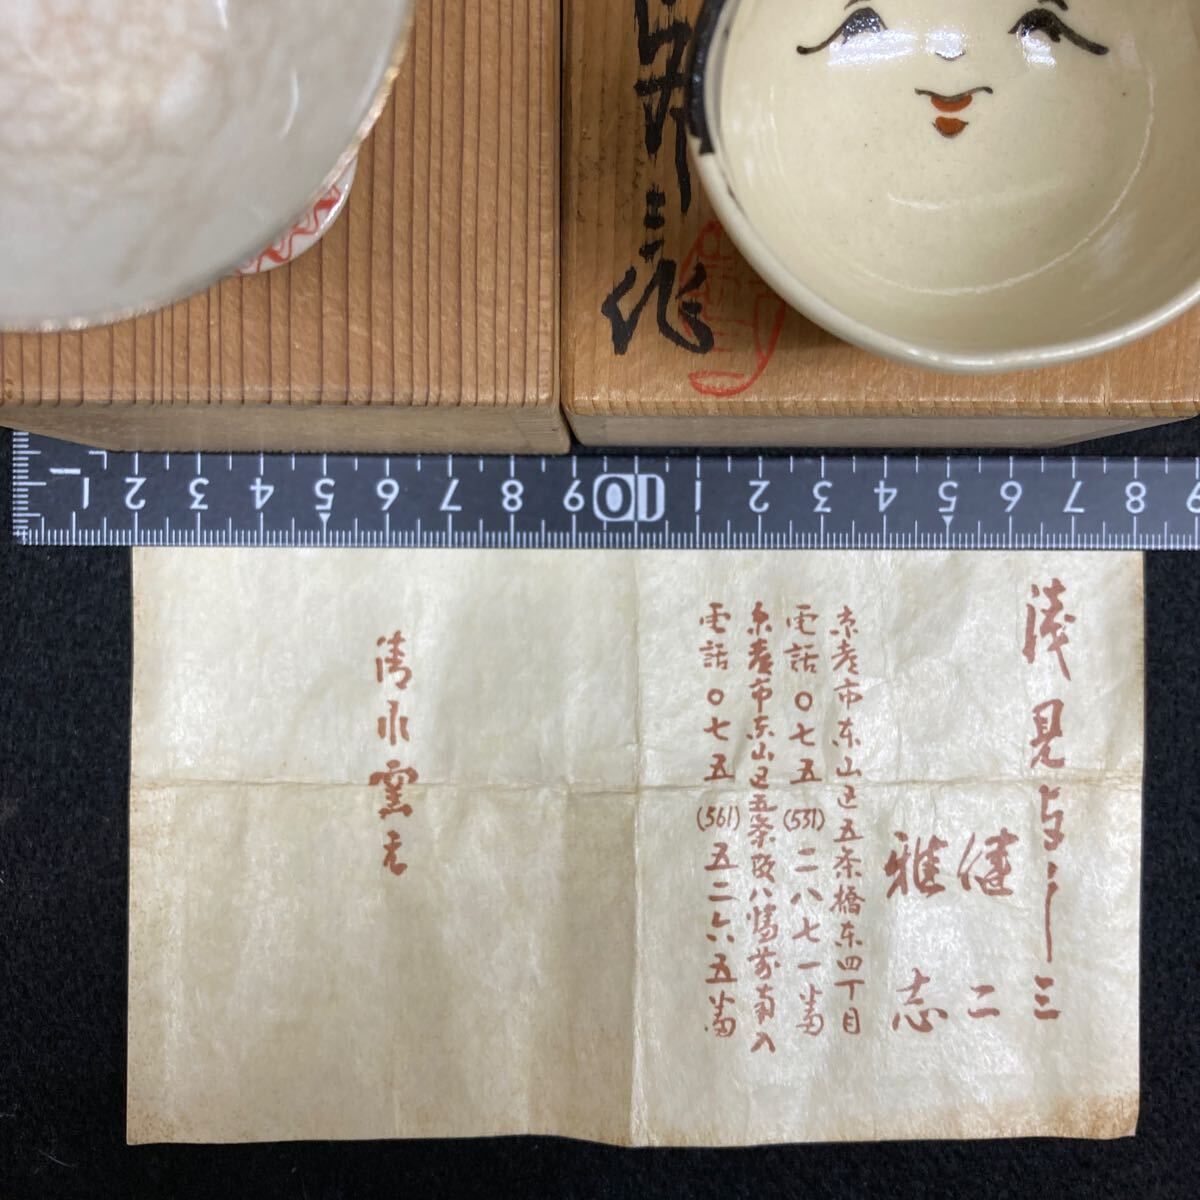 三作
1 2 3 4 5 6 7 8 9 10 1 2 3 4 5 6 7 8 9
浅見与し三
健二
雅志
京都市東山区五条橋東四丁目
電話〇七五(531)二八七一番
京都市東山区五条坂八幡前南入
電話〇七五(561)五二六五番
清水窯元